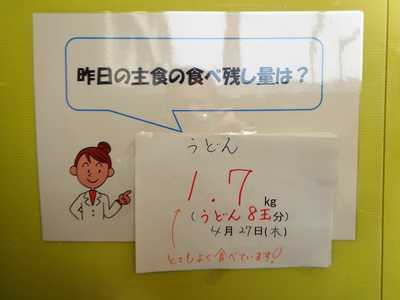 昨日の主食の食べ残し量は？
うどん
1.7kg
(うどん8玉分)
4月27日(木)
とてもよく食べています！